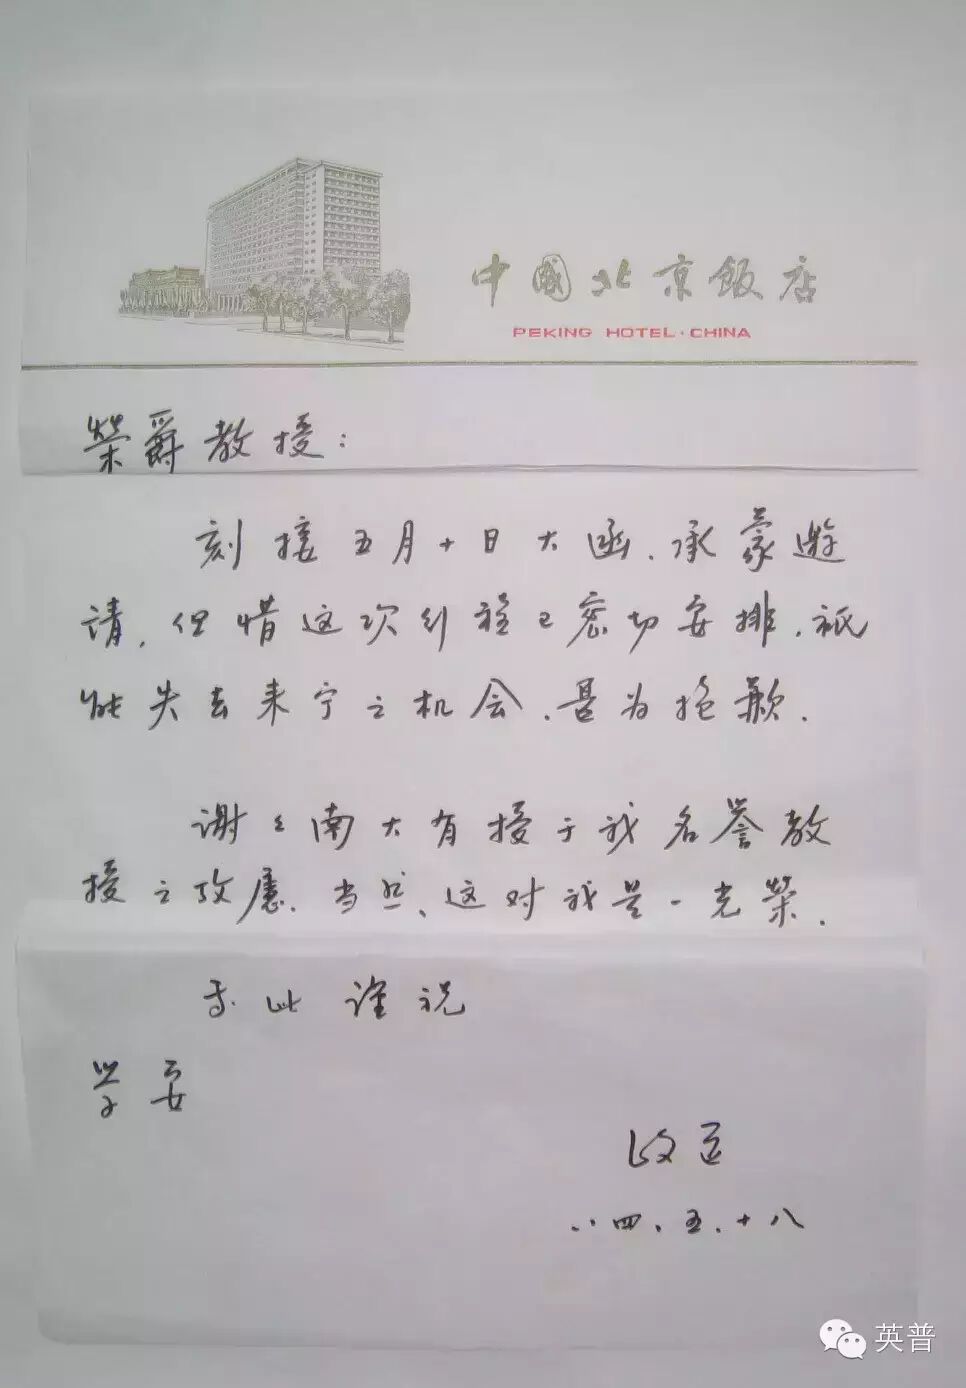 中國北京飯店
PEKING HOTEL·CHINA
榮爵教授：
刻接五月十日大函，承蒙邀
請，但惜这次行程已密切安排，祇
能失去来宁之机会，甚为抱歉．
谢々南大有授于我名誉教
授之考慮．当然，这对我是一光榮．
专此谨祝
学安
政道
八四、五、十八
英普